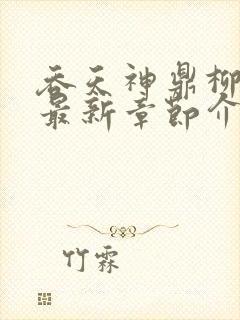 吞天神鼎柳
最新章节介
竹霖